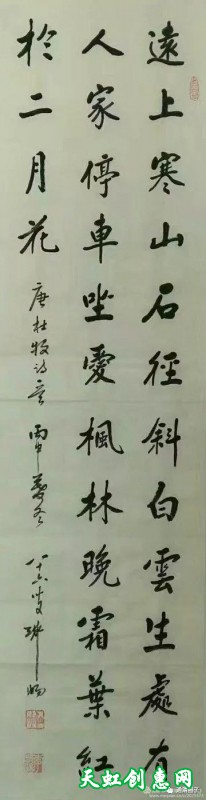 遠上寒山石徑斜白雲生處有
人家停車坐愛楓林晚霜葉紅
於二月花
唐杜牧詩意 丙申 冬 八十六叟
天虹创惠网